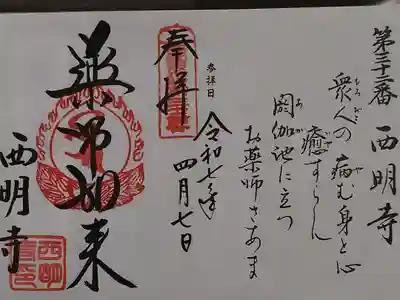 第三十三番 西明寺
衆人の 病む身と心
もろびと
癒すらん
いや
閼伽池に立つ
あか
お薬師さあま
参拝日
令和七年
四月七日
奉拝
薬师如来
西明寺